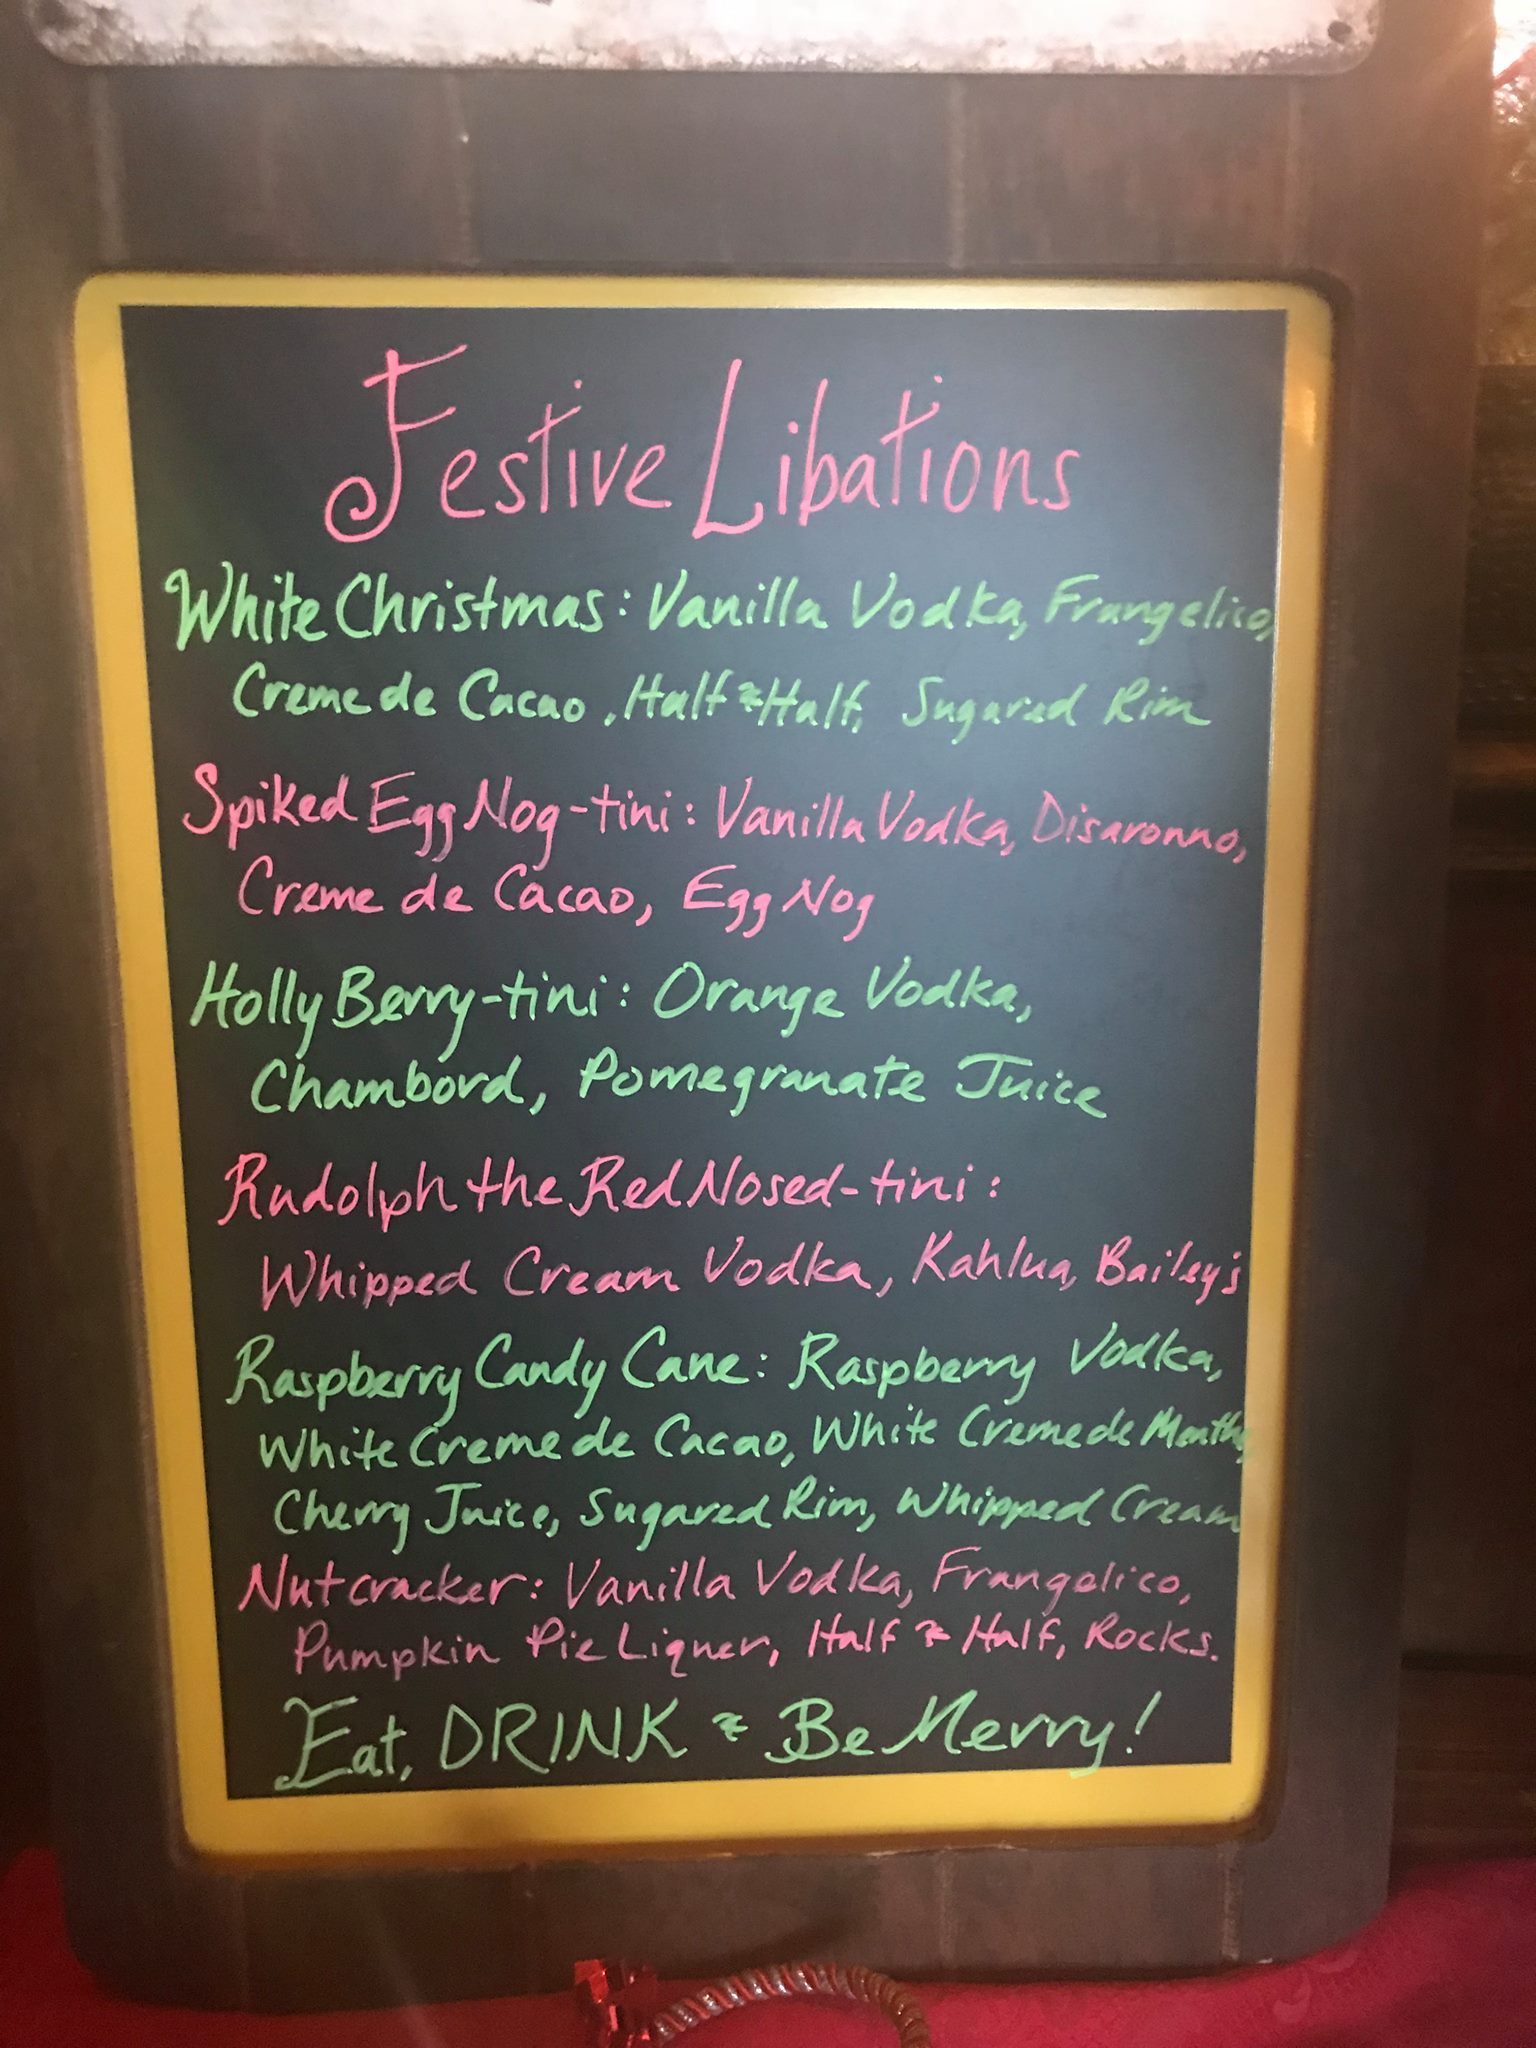 Festive Libations
White Christmas: Vanilla Vodka, Frangelico,
Creme de Cacao, Half & Half, Sugared Rim
Spiked Egg Nog-tini: Vanilla Vodka, Disaronno,
Creme de Cacao, Egg Nog
Holly Berry-tini: Orange Vodka,
Chambord, Pomegranate Juice
Rudolph the Red Nosed-tini:
Whipped Cream Vodka, Kahlua, Bailey's
Raspberry Candy Cane: Raspberry Vodka,
White Creme de Cacao, White Creme de Menthe,
Cherry Juice, Sugared Rim, Whipped Cream
Nutcracker: Vanilla Vodka, Frangelico,
Pumpkin Pie Liquer, Half & Half, Rocks.
Eat, DRINK & Be Merry!